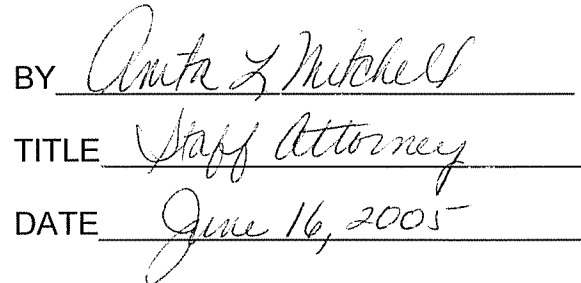 BY Anita L Mitchell
TITLE Staff Attorney
DATE June 16, 2005